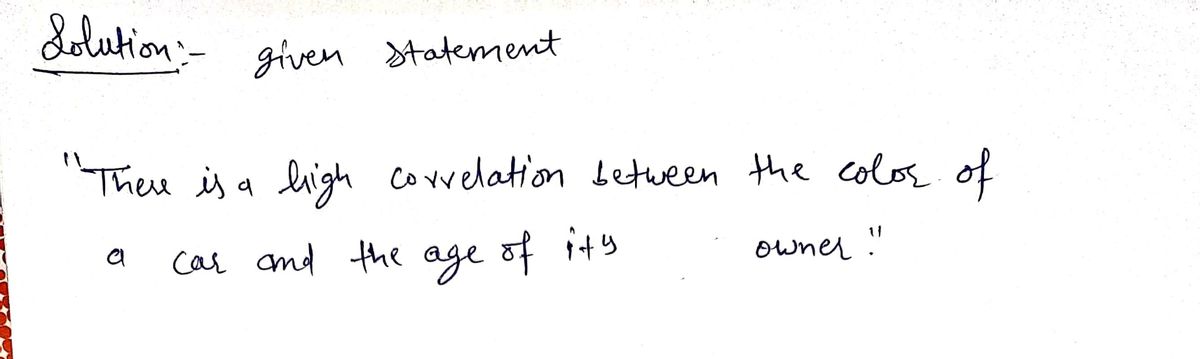 Solution:- given statement
"There is a high correlation between the color of
a car and the age of its owner"